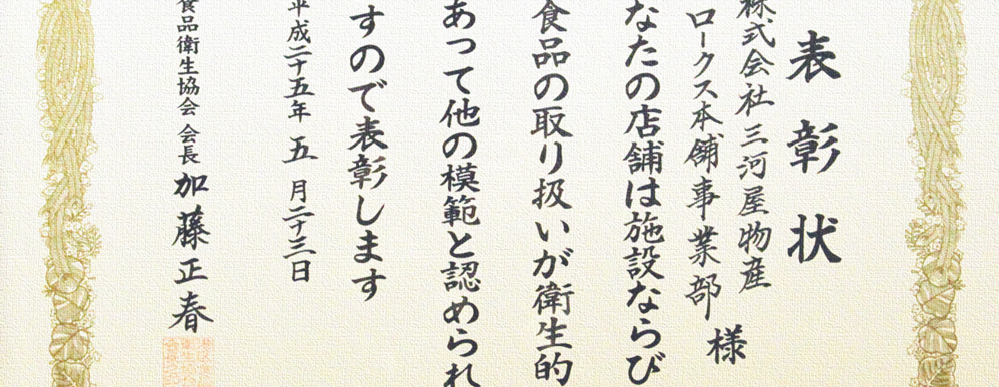 表彰状
株式会社三河屋物産
ロークス本舗事業部 様
なたの店舗は施設ならび
食品の取り扱いが衛生的
あって他の模範と認められ
すので表彰します
平成二十五年 五 月二十三日
食品衛生協会 会長 加藤正春